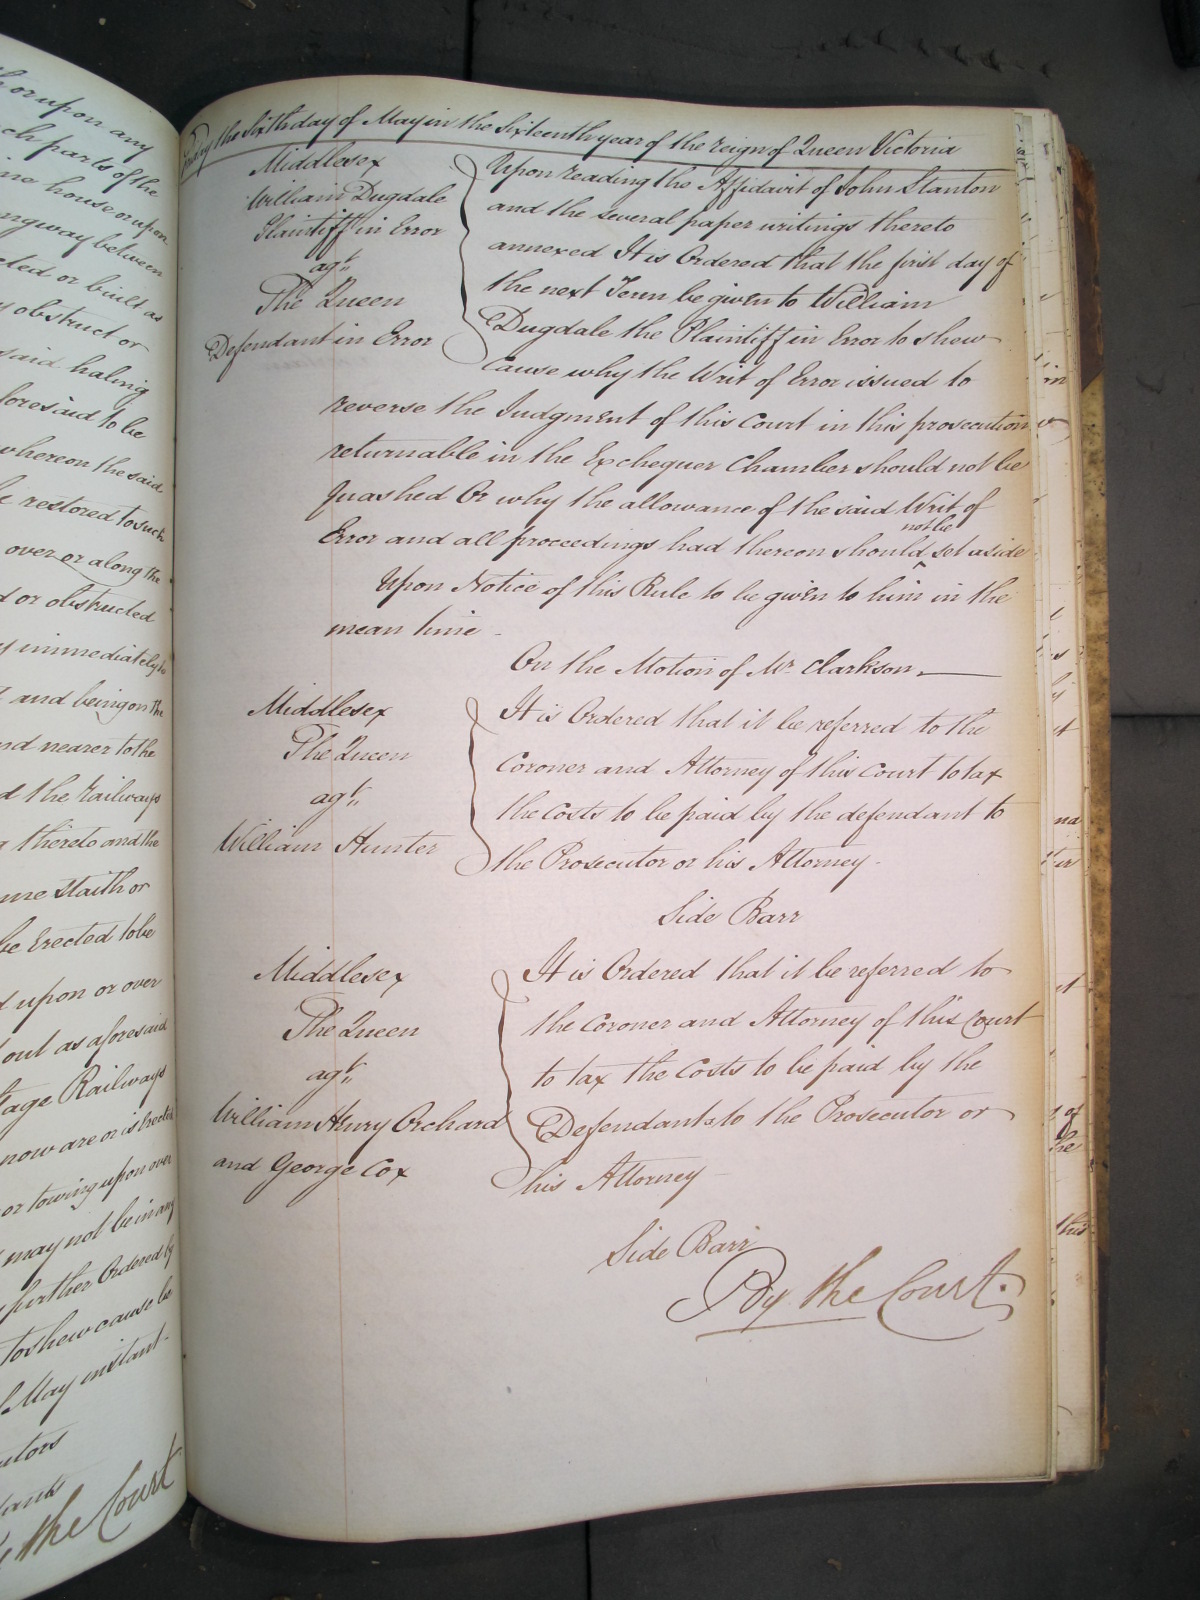 thorupon any
ch parts of the
ine house or upon
ngway between
cted or built as
y obstruct or
said haling
foresaid to be
whereon the said
be restored to such
over or along the
d or obstructed
y immediately
t and being on the
nd nearer to the
d the Railways
thereto and the
me Staith or
be Erected to be
d upon or over
out as aforesaid
tage Railways
now are or is Erected
or towing upon over
may not be in any
further Ordered by
to shew cause
May instant
utors
dants
the Court
Friday the Sixth day of May in the Sixteenth year of the reign of Queen Victoria
Middlesex
William Dugdale
Plaintiff in Error
agt.
The Queen
Defendant in Error
Upon reading the Affidavit of John Stanton
and the several paper writings thereto
annexed It is Ordered that the first day of
the next Term be given to William
Dugdale the Plaintiff in Error to shew
Cause why the Writ of Error issued to
reverse the Judgment of this Court in this prosecution
returnable in the Exchequer Chamber should not be
quashed Or why the allowance of the said Writ of
not be
Error and all proceedings had thereon should ^ set aside
Upon Notice of this Rule to be given to him in the
mean time
On the Motion of Mr. Clarkson
Middlesex
The Queen
agt.
William Hunter
It is Ordered that it be referred to the
Coroner and Attorney of this Court to tax
the Costs to be paid by the defendant to
the Prosecutor or his Attorney
Side Barr
Middlesex
The Queen
agt.
William Henry Orchard
and George Cox
It is Ordered that it be referred to
the Coroner and Attorney of this Court
to tax the Costs to be paid by the
Defendants to the Prosecutor or
his Attorney
Side Barr
By the Court.